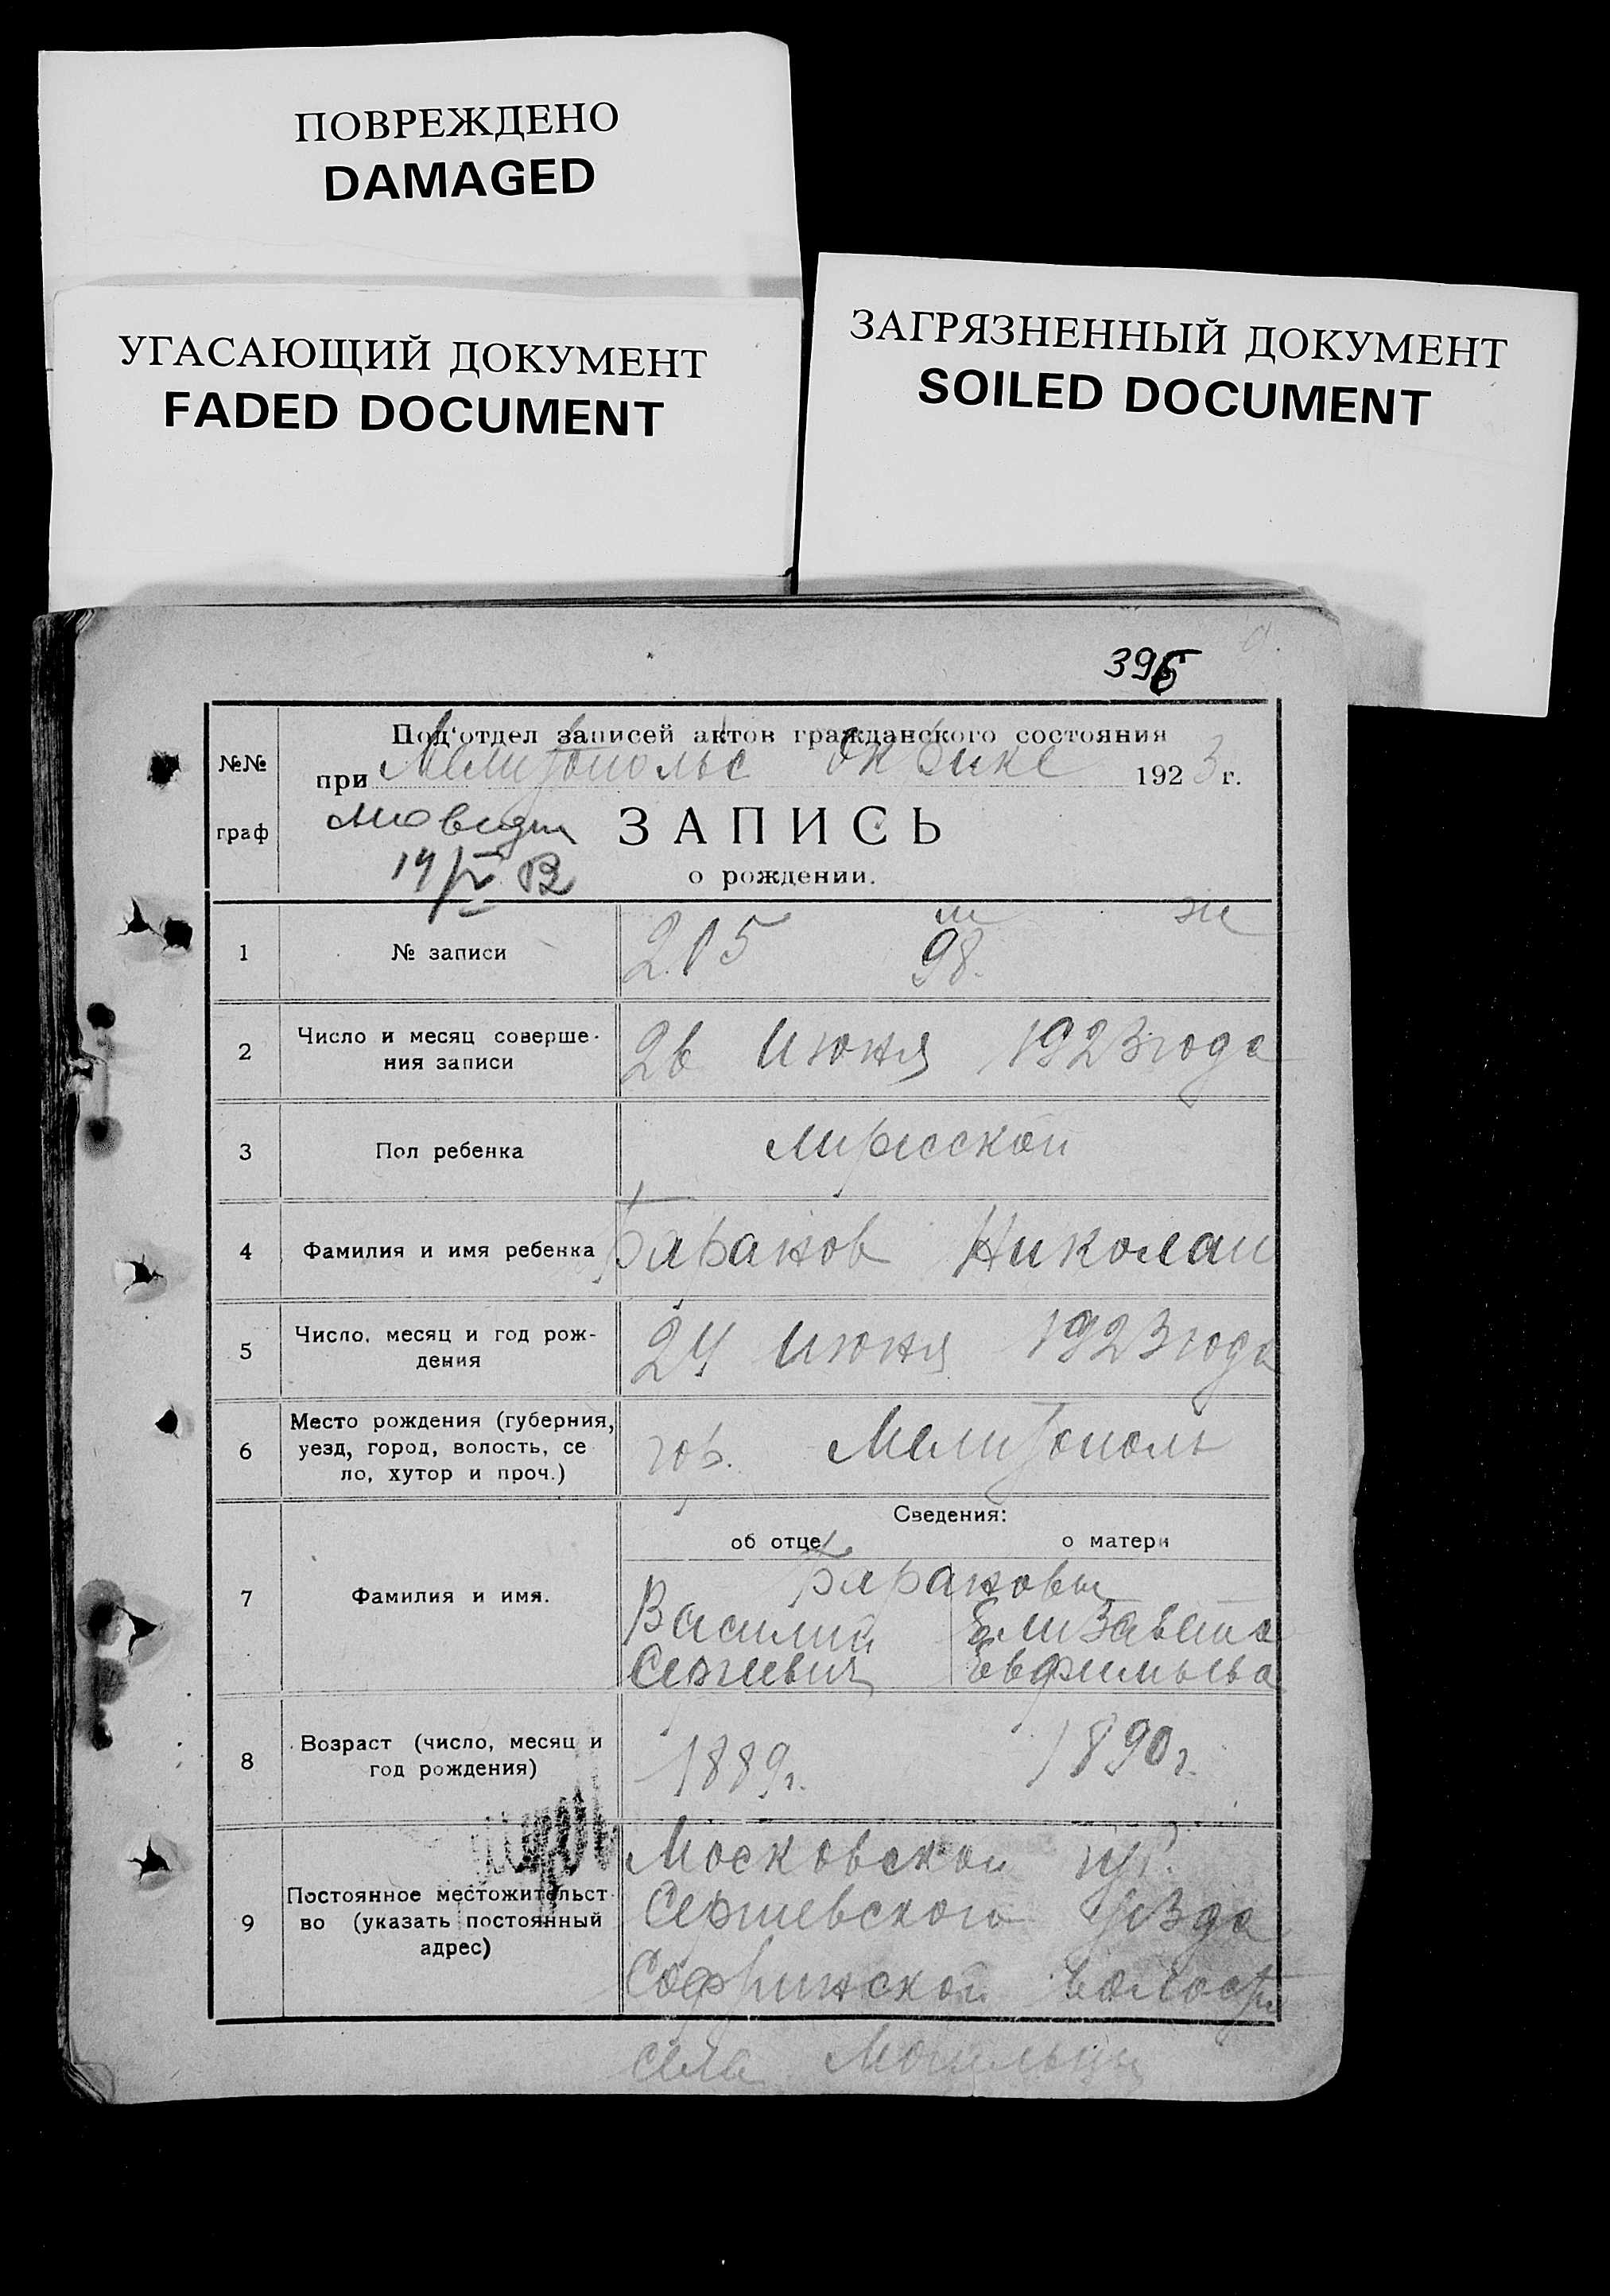 ПОВРЕЖДЕНО
DAMAGED
УГАСАЮЩИЙ ДОКУМЕНТ
FADED DOCUMENT
ЗАГРЯЗНЕННЫЙ ДОКУМЕНТ
SOILED DOCUMENT
396
№№ граф
Под'отдел записей актов гражданского состояния
при Мелитопольс 1923 г.
ЗАПИСЬ
о рождении.
м ж
1 № записи 215 98.
2 Число и месяц соверше-
ния записи 26 Июня 1923 года
3 Пол ребенка мужской
4 Фамилия и имя ребенка Баранов Николай
5 Число, месяц и год рож-
дения 24 Июня 1923 года
6 Место рождения (губерния,
уезд, город, волость, се
ло, хутор и проч.) гор. Мелитополь
Сведения:
об отце о матери
7 Фамилия и имя. Барановы
Василий Елизавета
Сергеевич Евфимьева
8 Возраст (число, месяц и
год рождения) 1889г. 1890г.
9 Постоянное местожительст-
во (указать постоянный
адрес)
Московской губ.
Сергиевского уезда
Софринской волости
села Могильцы